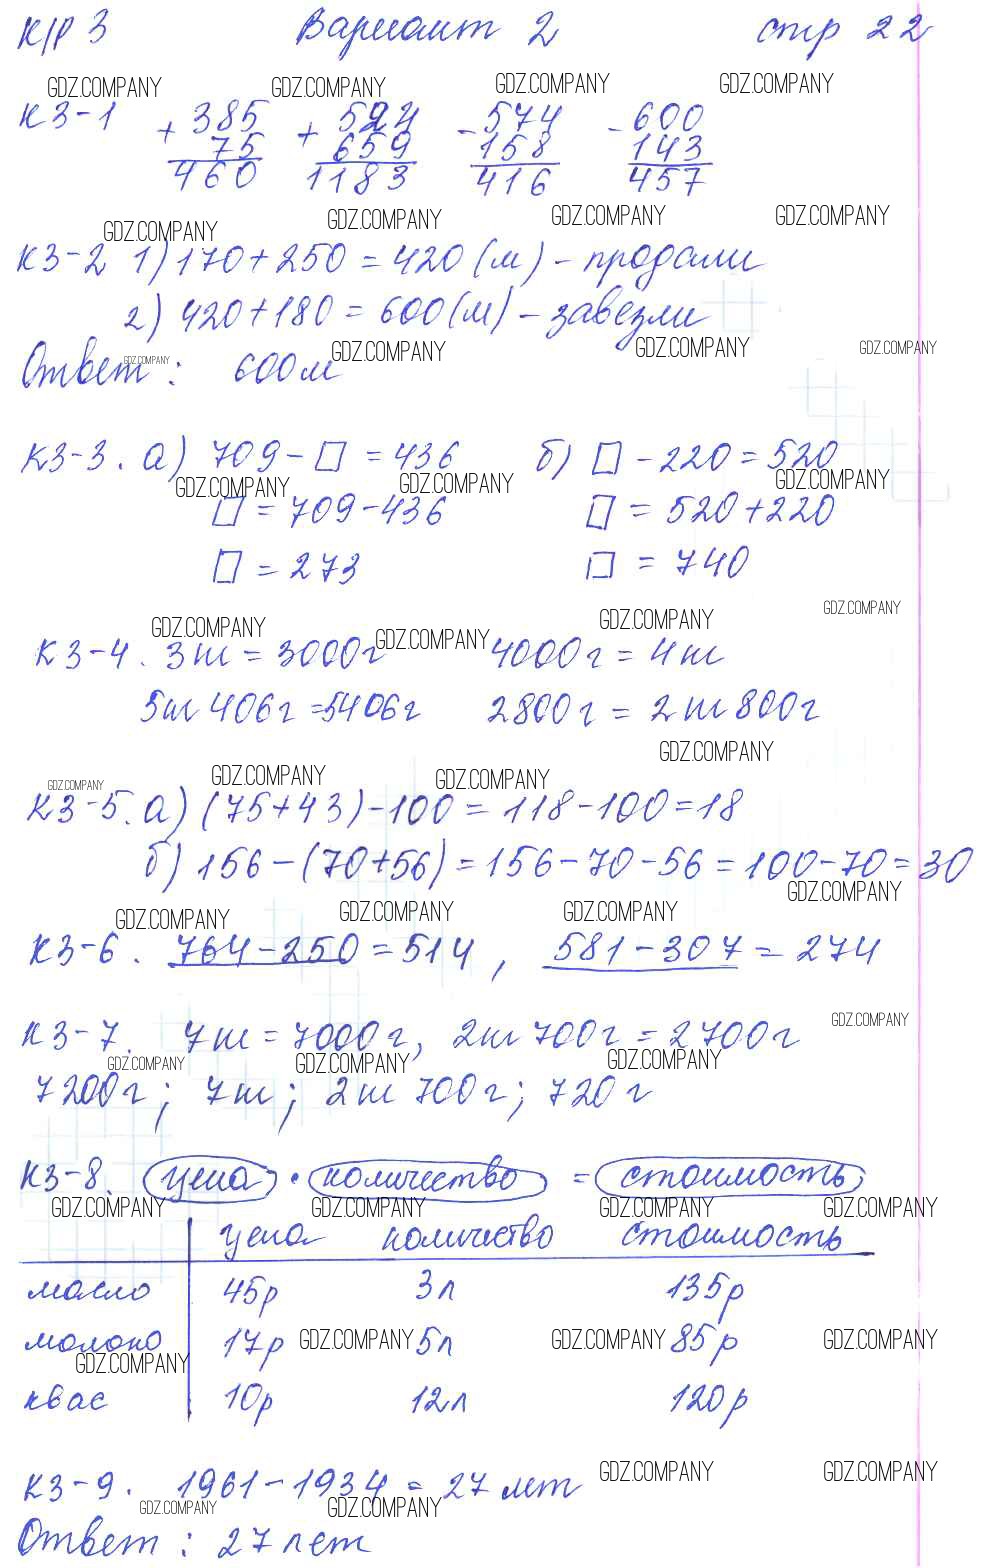 К/Р 3 Вариант 2 стр 22
GDZ.COMPANY GDZ.COMPANY GDZ.COMPANY GDZ.COMPANY
К3-1 + 385 + 524 - 574 - 600
75 659 158 143
460 1183 416 457
GDZ.COMPANY GDZ.COMPANY GDZ.COMPANY GDZ.COMPANY
К3-2 1) 170 + 250 = 420 (м) - продали
2) 420 + 180 = 600 (м) - завезли
Ответ: 600 м
GDZ.COMPANY GDZ.COMPANY GDZ.COMPANY GDZ.COMPANY
К3-3. а) 709 - □ = 436 б) □ - 220 = 520
GDZ.COMPANY GDZ.COMPANY GDZ.COMPANY
□ = 709 - 436 □ = 520 + 220
□ = 273 □ = 740
GDZ.COMPANY GDZ.COMPANY GDZ.COMPANY GDZ.COMPANY
К3-4. 3 т = 3000 г 4000 г = 4 т
5 т 406 г = 5406 г 2800 г = 2 т 800 г
GDZ.COMPANY
GDZ.COMPANY GDZ.COMPANY GDZ.COMPANY
К3-5. а) (75 + 43) - 100 = 118 - 100 = 18
б) 156 - (70 + 56) = 156 - 70 - 56 = 100 - 70 = 30
GDZ.COMPANY GDZ.COMPANY GDZ.COMPANY GDZ.COMPANY
К3-6. 764 - 250 = 514, 581 - 307 = 274
GDZ.COMPANY
К3-7. 7 т = 7000 г, 2 т 700 г = 2700 г
GDZ.COMPANY GDZ.COMPANY GDZ.COMPANY
7200 г; 7 т; 2 т 700 г; 720 г
К3-8. цена · количество = стоимость
GDZ.COMPANY GDZ.COMPANY GDZ.COMPANY GDZ.COMPANY
цена количество стоимость
масло 45р 3л 135р
молоко 17р 5л 85р
GDZ.COMPANY GDZ.COMPANY GDZ.COMPANY GDZ.COMPANY
квас 10р 12л 120р
GDZ.COMPANY GDZ.COMPANY
К3-9. 1961 - 1934 = 27 лет
GDZ.COMPANY GDZ.COMPANY
Ответ: 27 лет